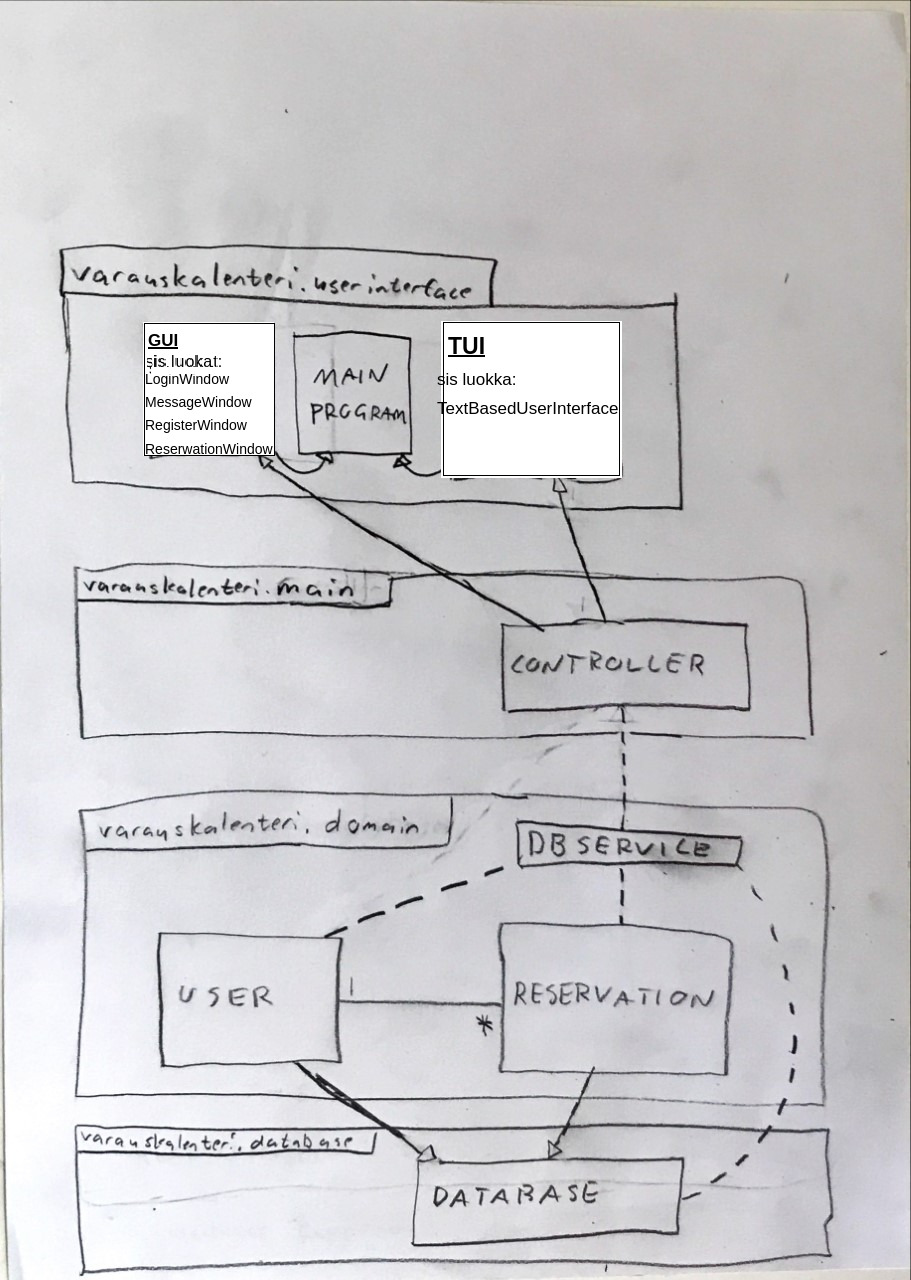 varauskalenteri.userinterface
GUI
sis luokat:
LoginWindow
MessageWindow
RegisterWindow
ReserwationWindow
MAIN
PROGRAM
TUI
sis luokka:
TextBasedUserInterface
varauskalenteri.main
CONTROLLER
varauskalenteri.domain
DBSERVICE
USER
1
*
RESERVATION
varauskalenteri.database
DATABASE